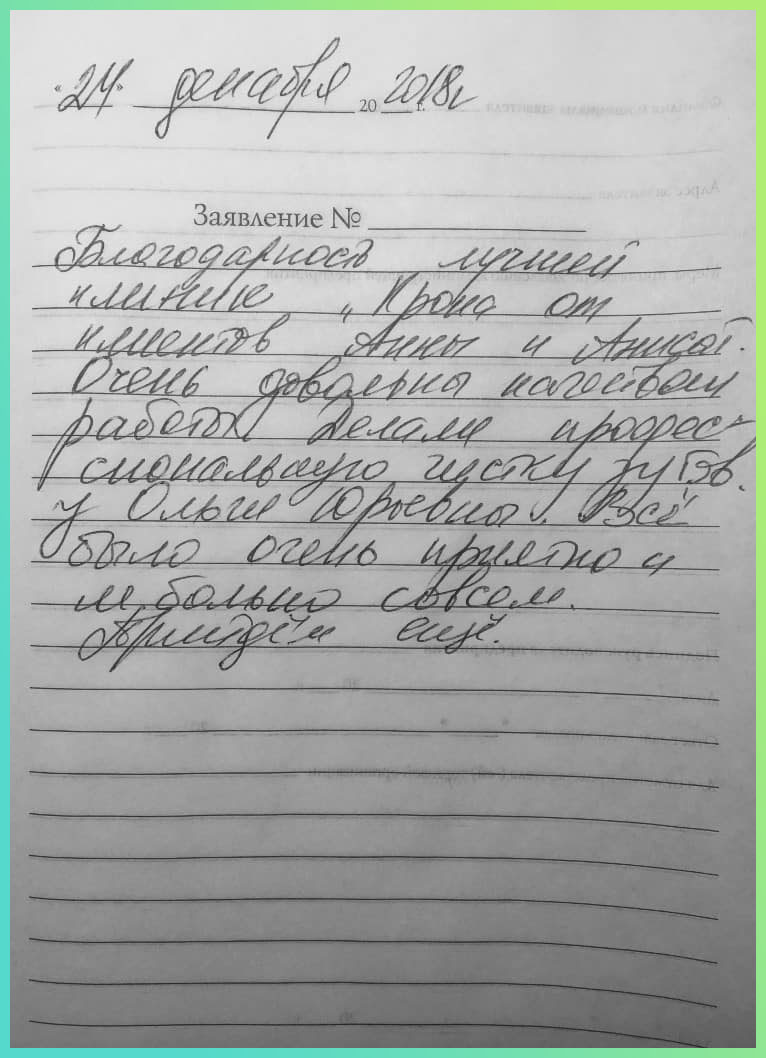 «24» декабря 20 2018г г.
Заявление №
Благодарность лучшей
клинике „Крона от
клиентов Анны и
Очень довольны качеством
работы. Делали профес-
сиональную чистку зубов.
у Ольги Юрьевны. Всё
было очень приятно и
не больно совсем.
Прийдём ещё.